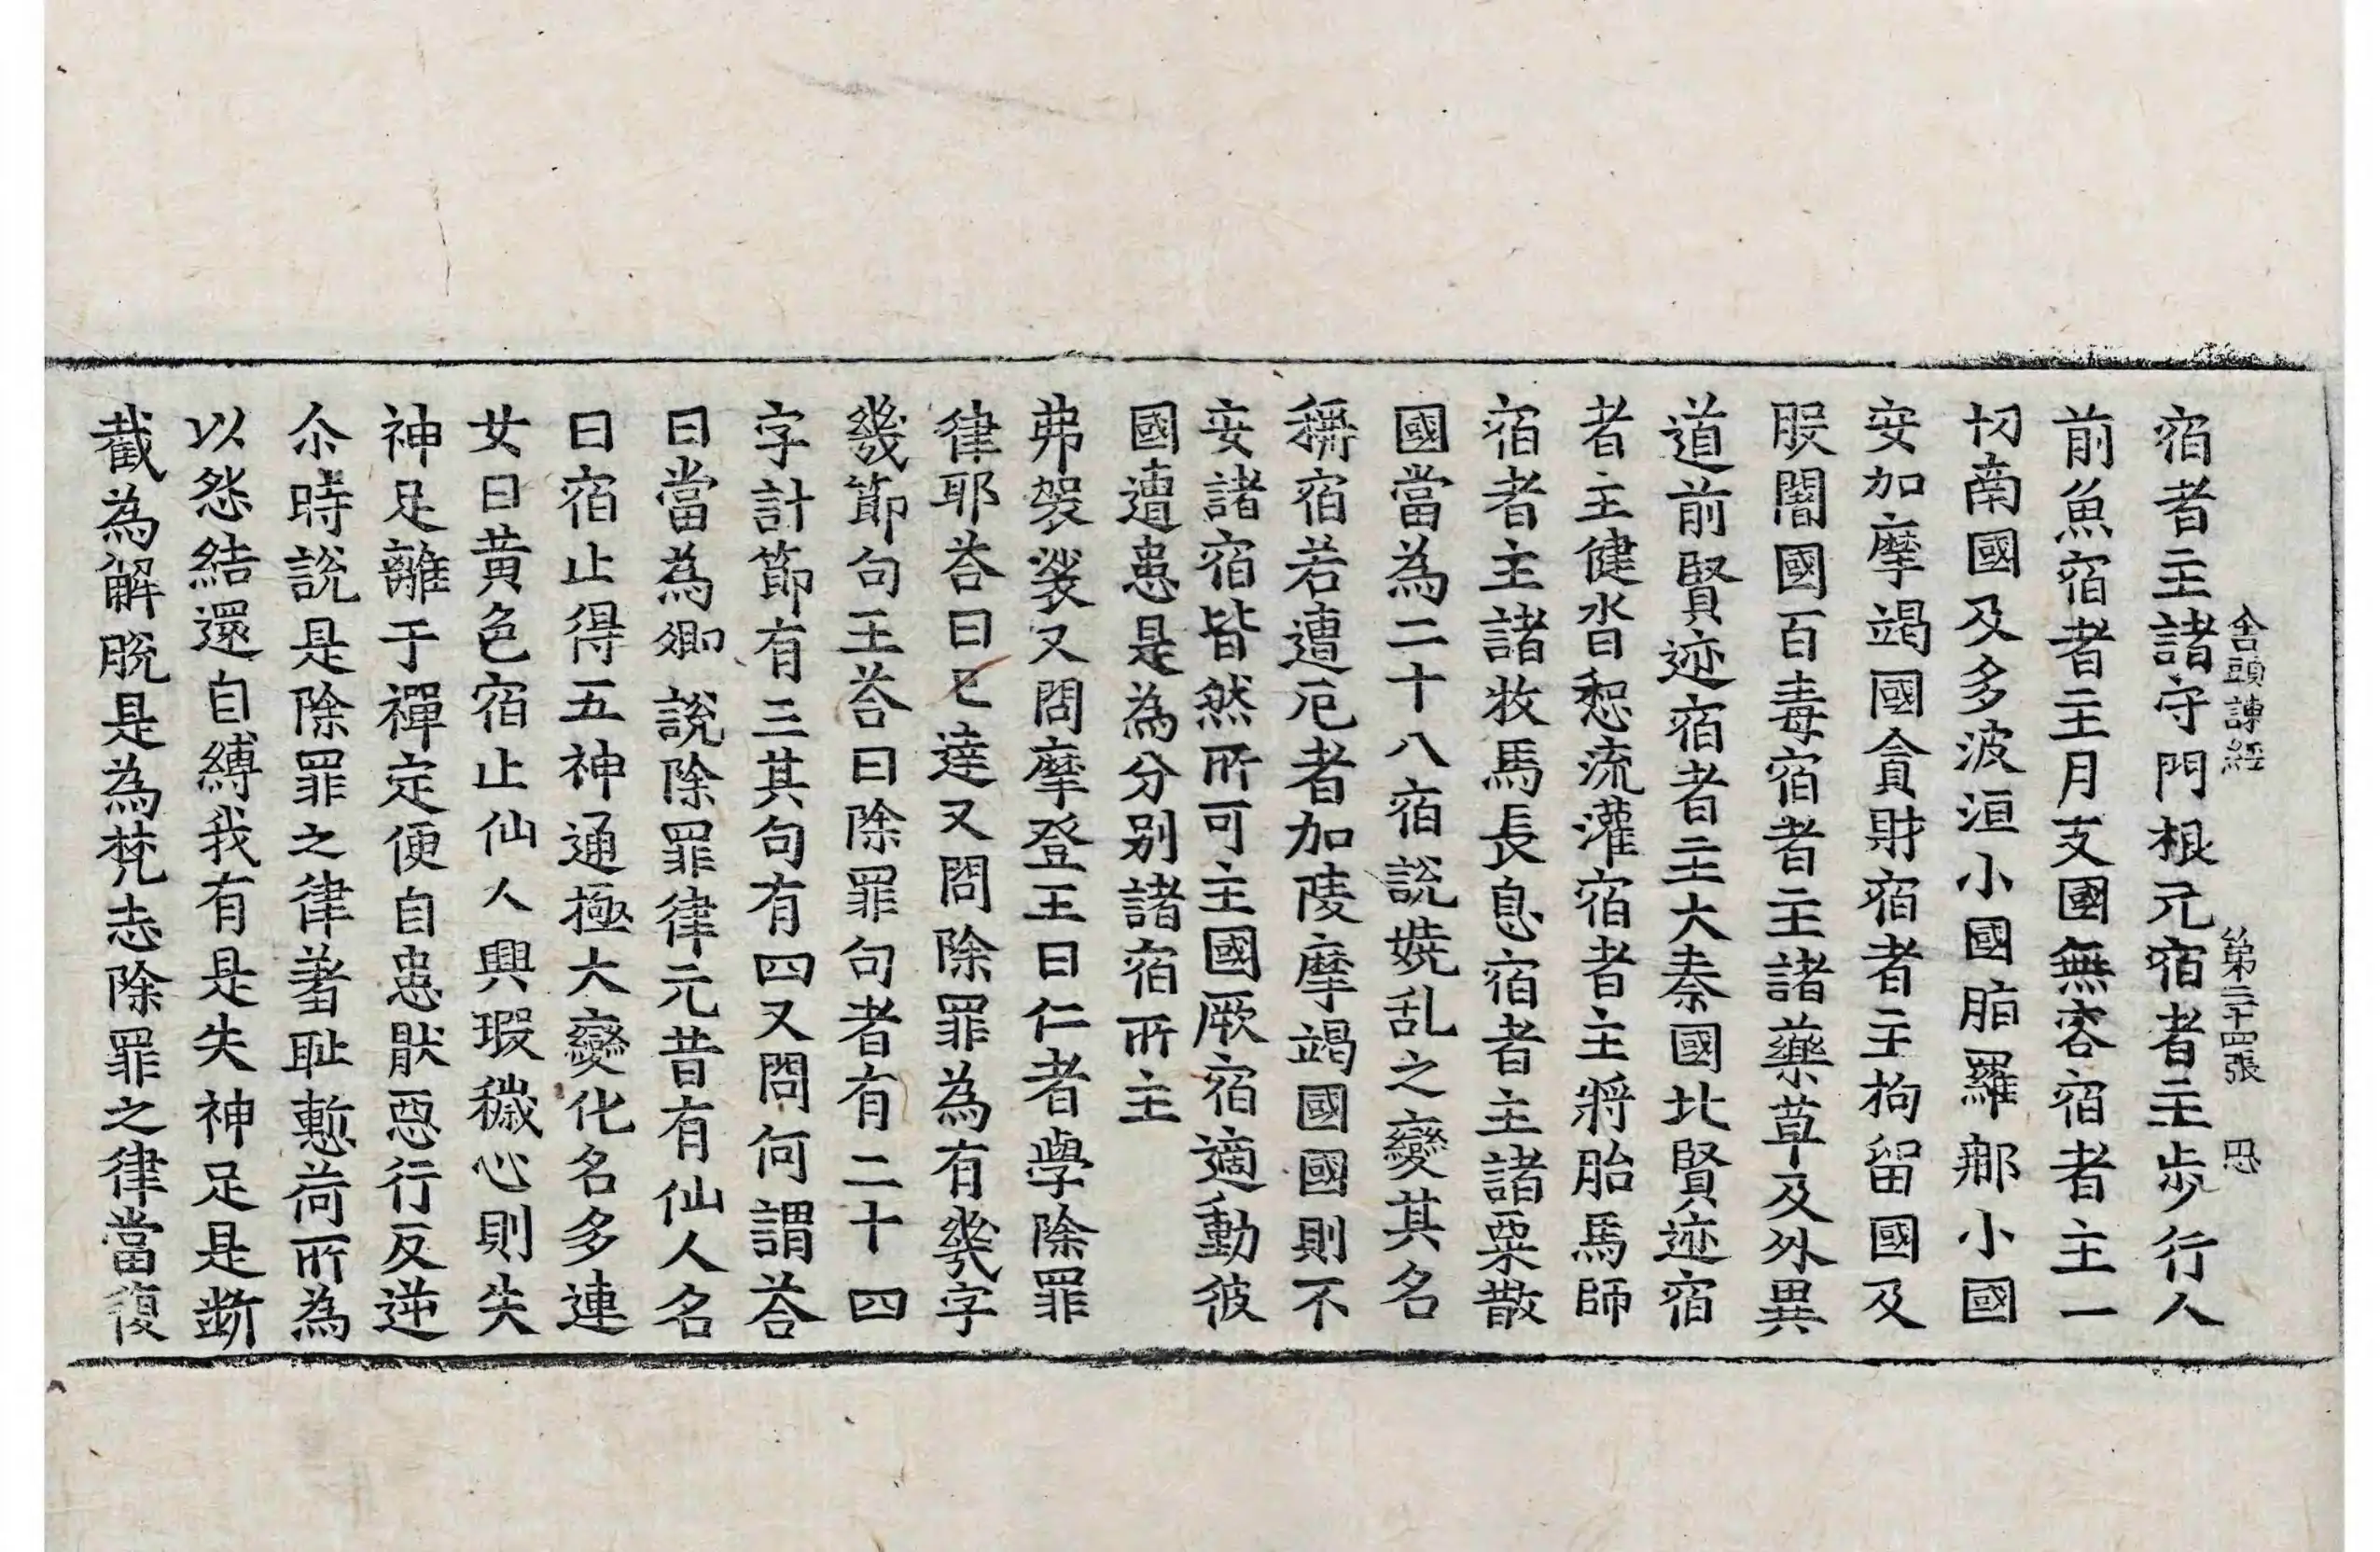 舍頭諫經 第二十四張 思
宿者主諸守門根元宿者主步行人
前魚宿者主月支國無容宿者主一
切南國及多波洹小國脂羅鄉小國
安加摩竭國貪財宿者主拘留國及
服闇國百毒宿者主諸藥草及外異
道前賢迹宿者主大秦國北賢迹宿
者主健沓惒流灌宿者主將胎馬師
宿者主諸牧馬長息宿者主諸粟散
國當為二十八宿說嬈乱之變其名
稱宿若遭厄者加陵摩竭國國則不
安諸宿皆然所可主國厥宿適動彼
國遭患是為分別諸宿所主
弗袈裟又問摩登王曰仁者學除罪
律耶荅曰已達又問除罪為有幾字
幾節句王荅曰除罪句者有二十四
字計節有三其句有四又問何謂荅
曰當為卿說除罪律元昔有仙人名
曰宿止得五神通極大變化名多連
女曰黃色宿止仙人興瑕穢心則失
神足離于禪定便自患厭惡行反逆
尒時說是除罪之律著恥慙荷所為
以怨結還自縛我有是失神足是斷
截為解脫是為梵志除罪之律當復